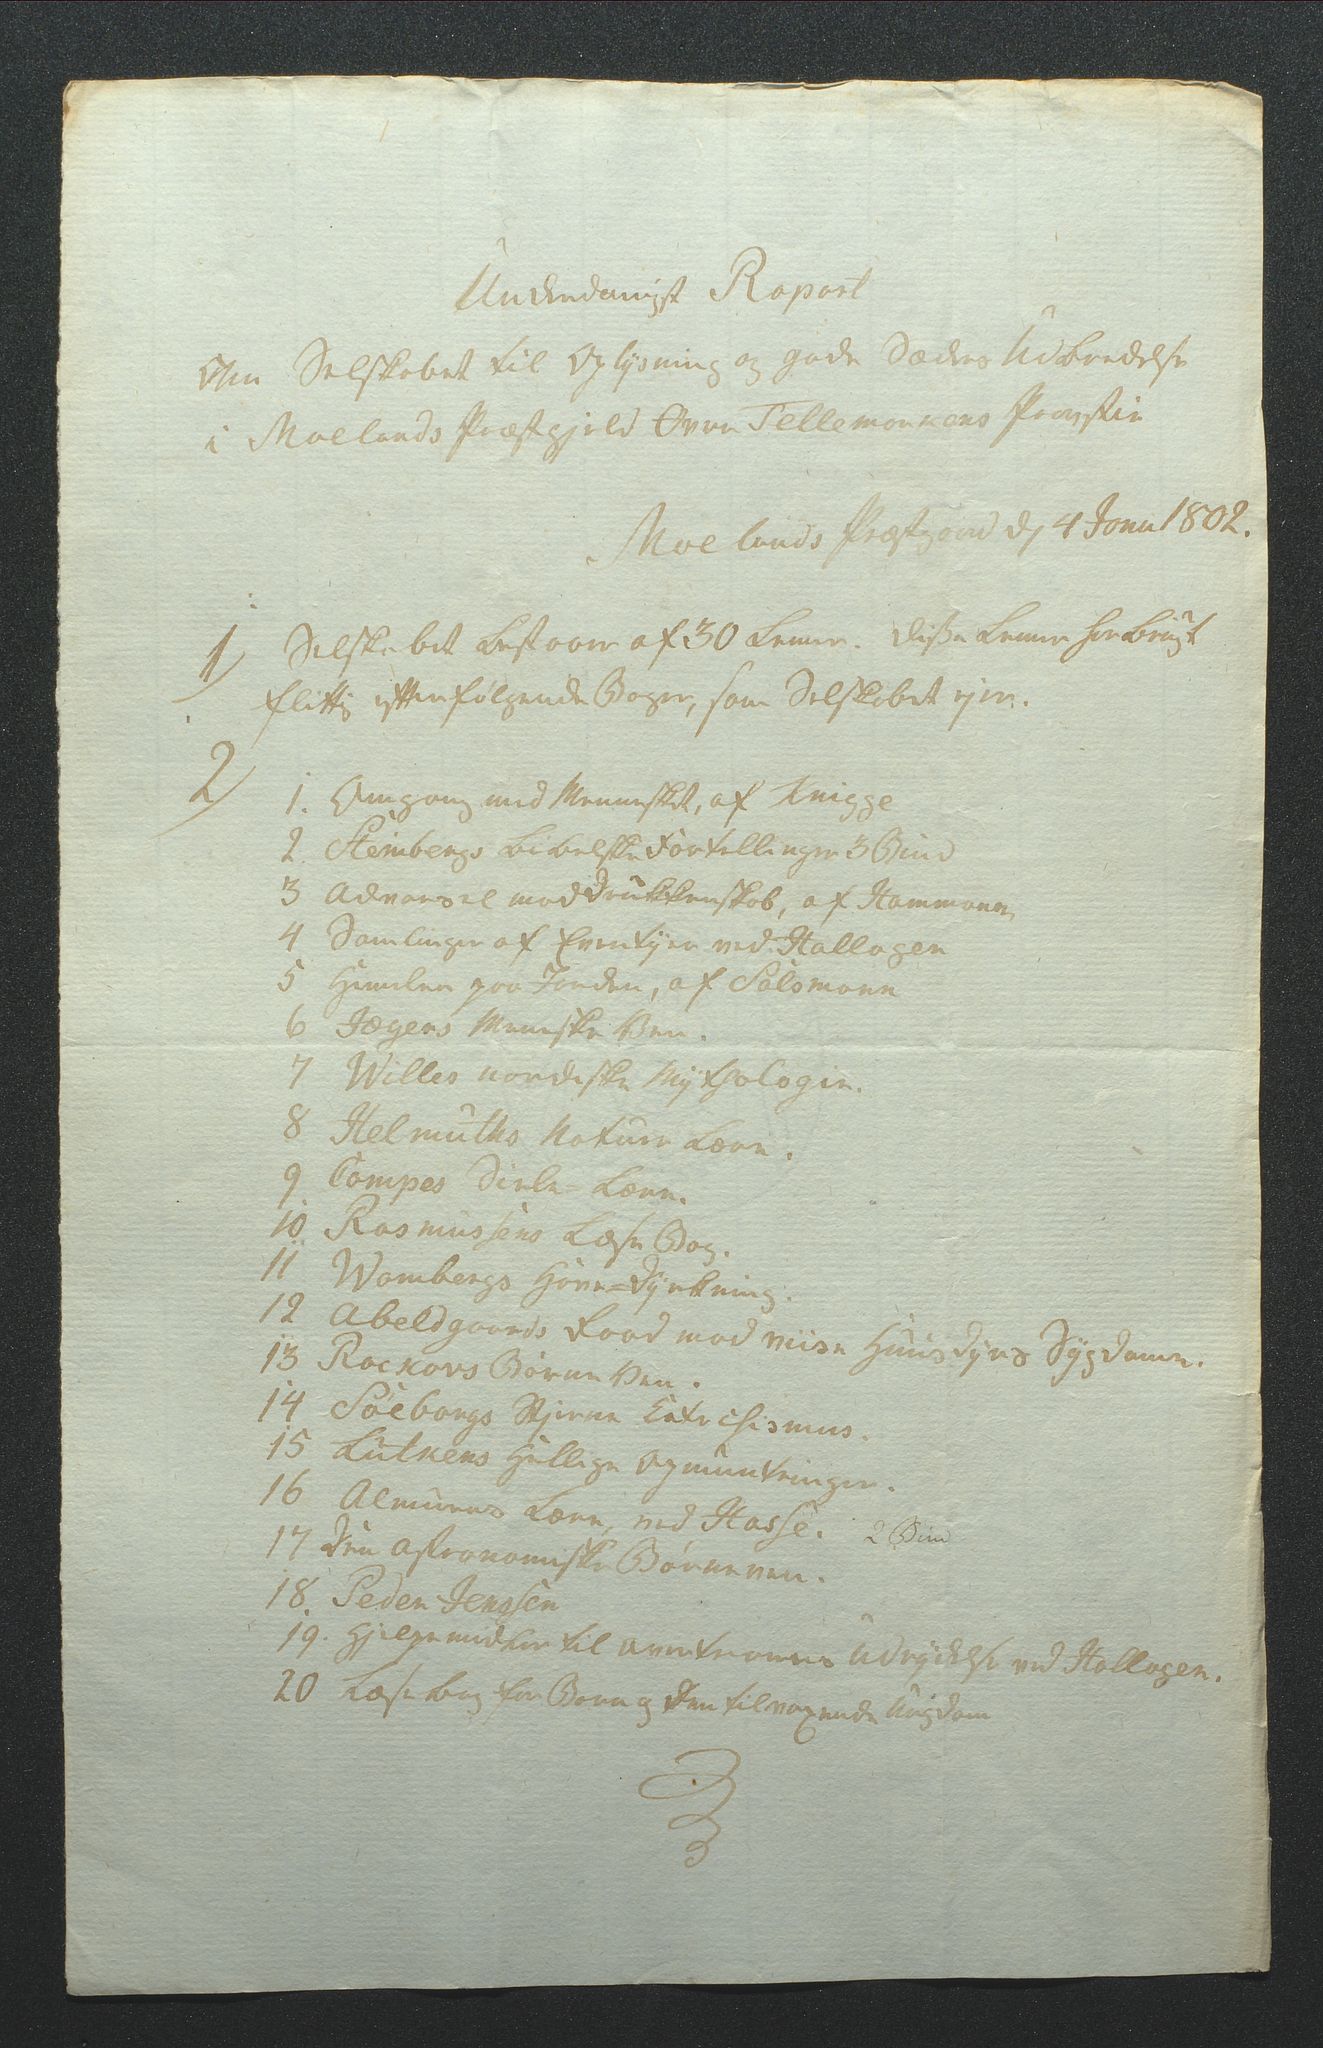 Underdanigst Raport
Om Selskabet til Oplysning og gode Sæders Udbredelse
i Moelands Præstgjeld Øvre Tellemarkens Provstie
Moelands Præstgaard d 4 Janu 1802.
1 Selskabet bestaaer af 30 Lemer. Disse Lemer har brugt
flittig efterfølgende Bøger, som Selskabet ejer.
2
1. Omgang med Mennesket, af Knigge
2. Steinbergs bibelske Fortellinger 3 Bind
3 Advarsel mod Drukkenskab, af Hammann
4 Samlinger af Eventyer ved Hallagen
5 Himlen paa Jorden, af Salsmann
6 Jægers Menneske Ven.
7 Willes nordiske Mythologie.
8 Helmuths Naturr Lære.
9 Campes Siele-Lære.
10 Rasmussens Læse Bog.
11 Wambergs Hørre-Dyrkning.
12 Abeldgaards Raad mod visse Huusdyrs Sygdomme.
13 Rockovs Børne Ven.
14 Søeborgs Stjerne Catechismus.
15 Lutkens Hellige Opmuntringer.
16 Almuens Lærer, ved Hasse. 2 Bind
17 Den astronomiske Børneven.
18. Peder Jenssen
19. Hjelpemidler til Overtroens Udrydelse ved Hallagen.
20 Læse bog for Børn og den tilvoxende Ungdom